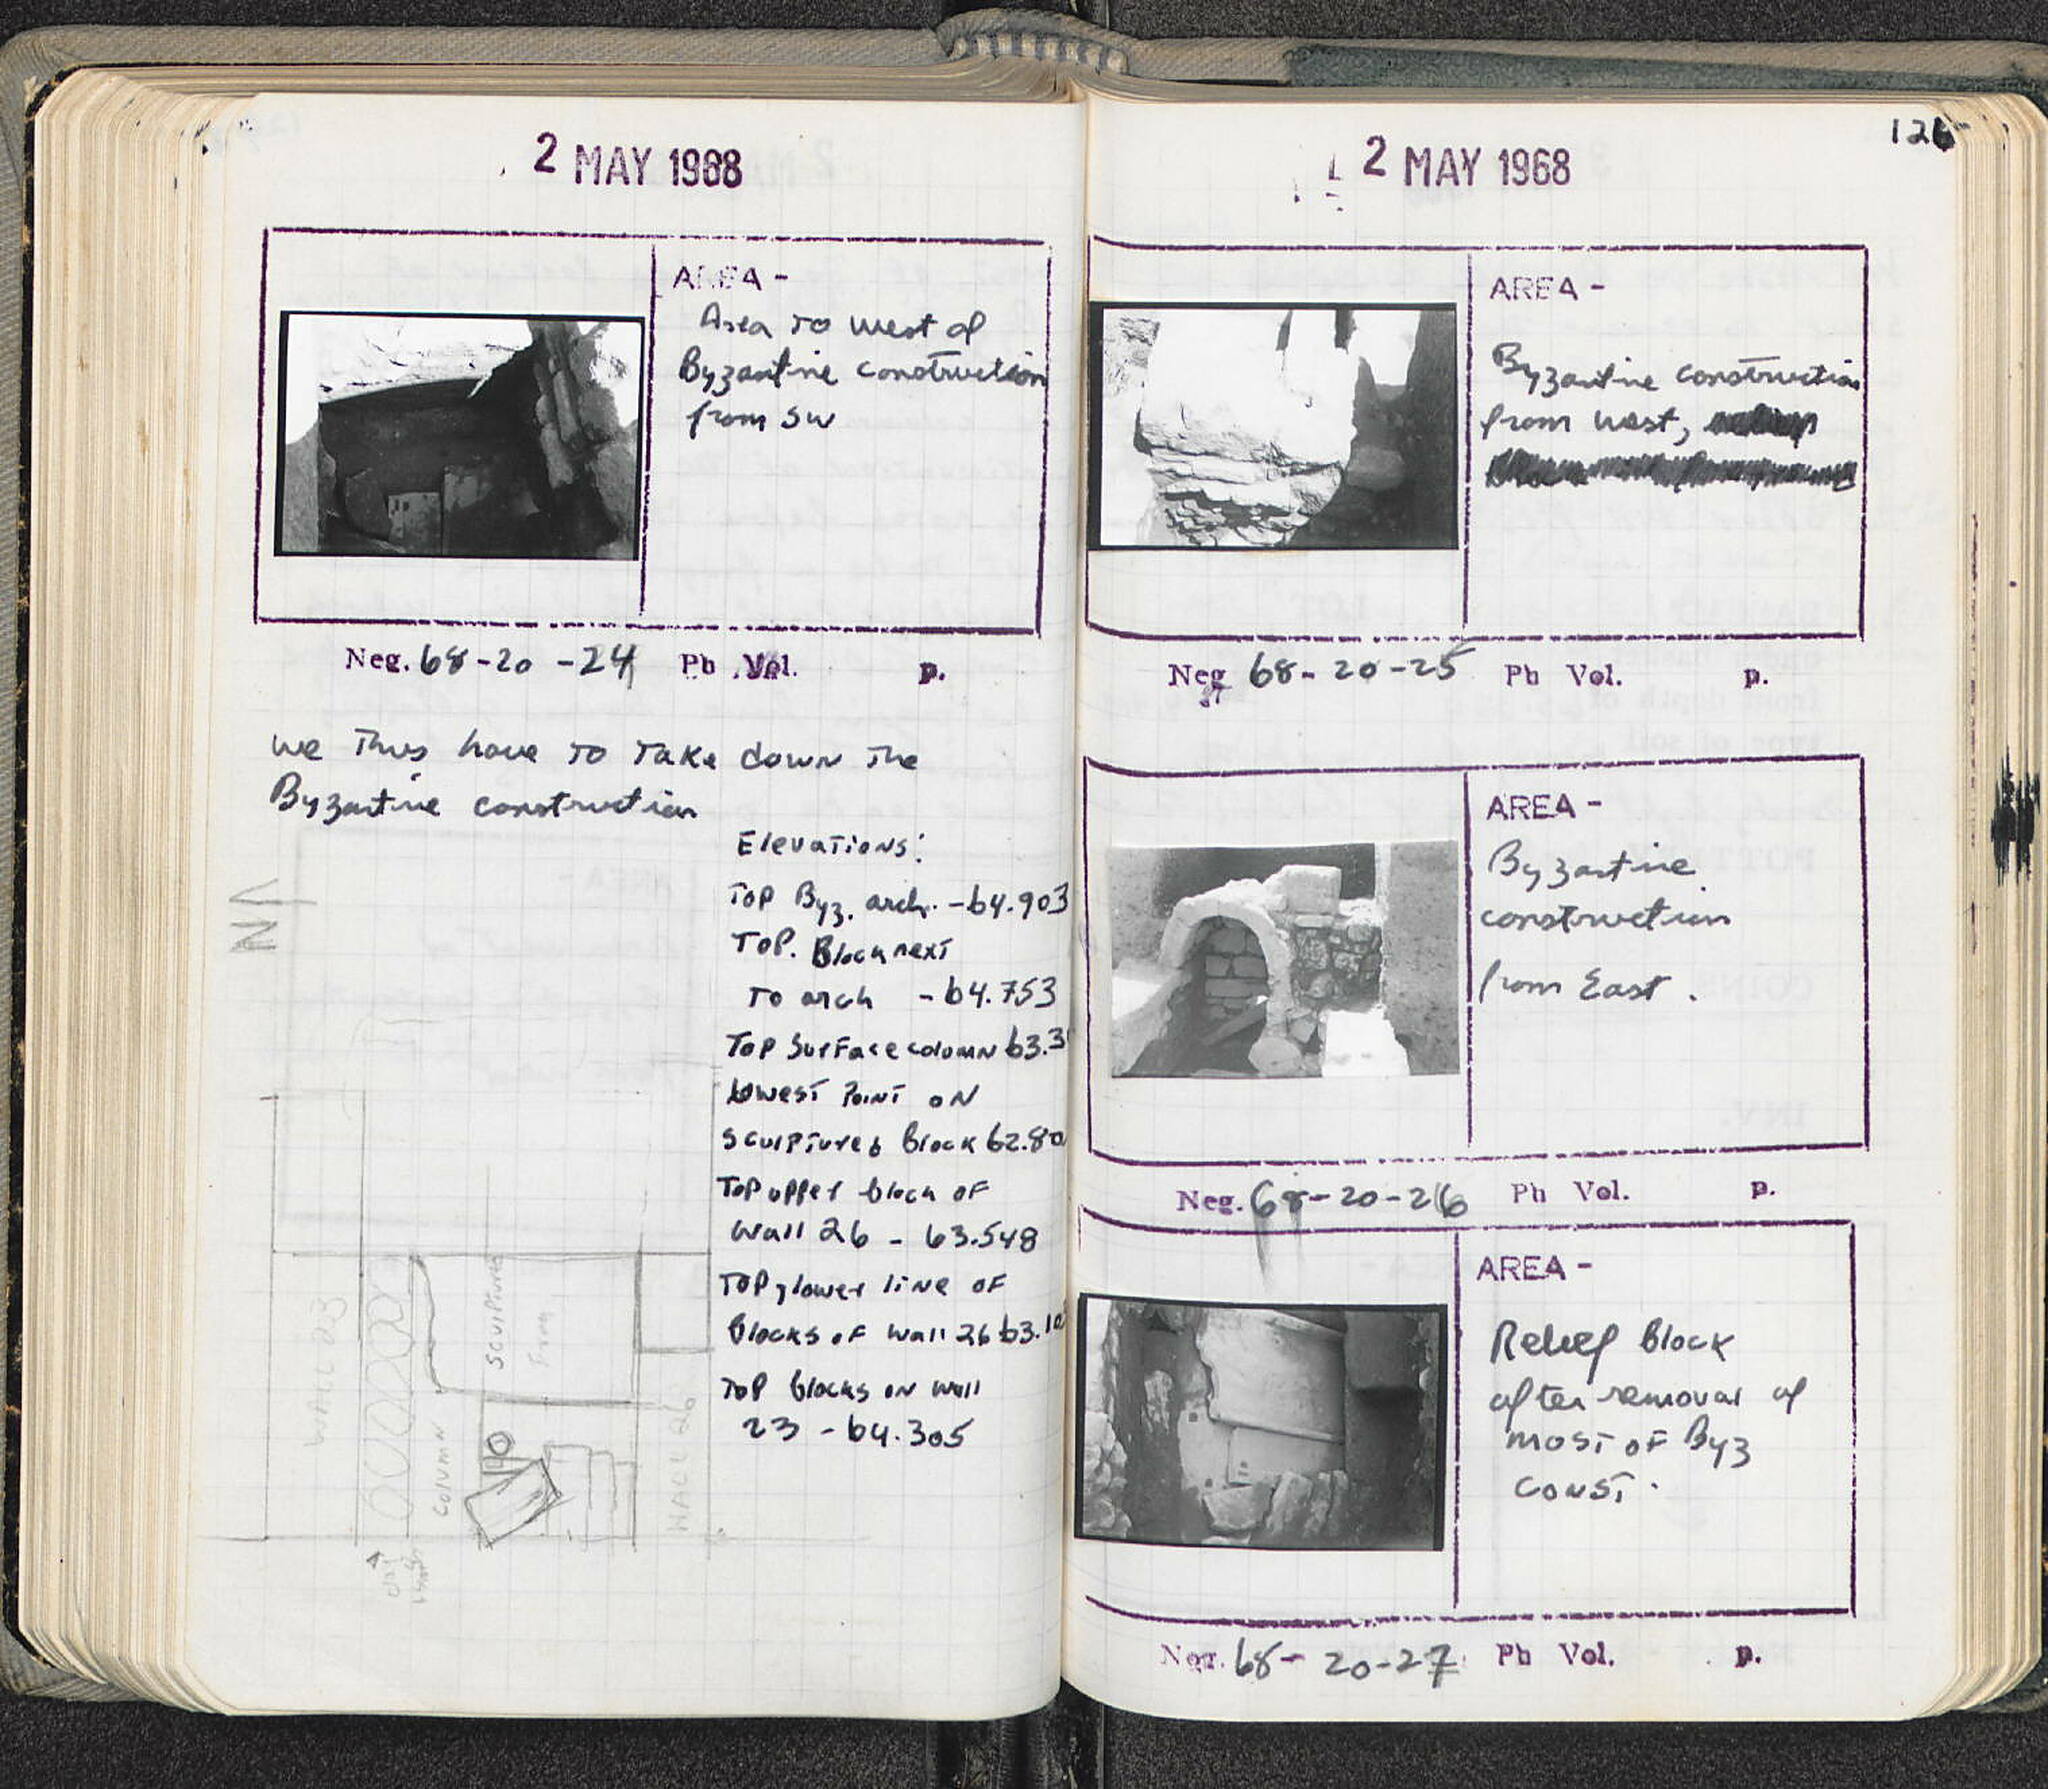 2 MAY 1968
AREA -
Area to west of
Byzantine construction
from SW
Neg. 68-20-24 Ph Vol. p.
we thus have to take down the
Byzantine construction
Elevations:
Top Byz. arch. -64.903
Top. Block next
to arch -64.753
Top surface column 63.3
lowest point on
sculptured block 62.80
Top upper block of
Wall 26 - 63.548
Top lower line of
blocks of wall 26 63.10
Top blocks on wall
23 - 64.305
N
WALL 23
COLUMN
Sculptured
WALL 26
2 MAY 1968
126
AREA -
Byzantine construction
from west,
Neg 68-20-25 Ph Vol. p.
AREA -
Byzantine
construction
from East.
Neg. 68-20-26 Ph Vol. p.
AREA -
Relief block
after removal of
most of Byz
const.
Neg. 68-20-27 Ph Vol. p.